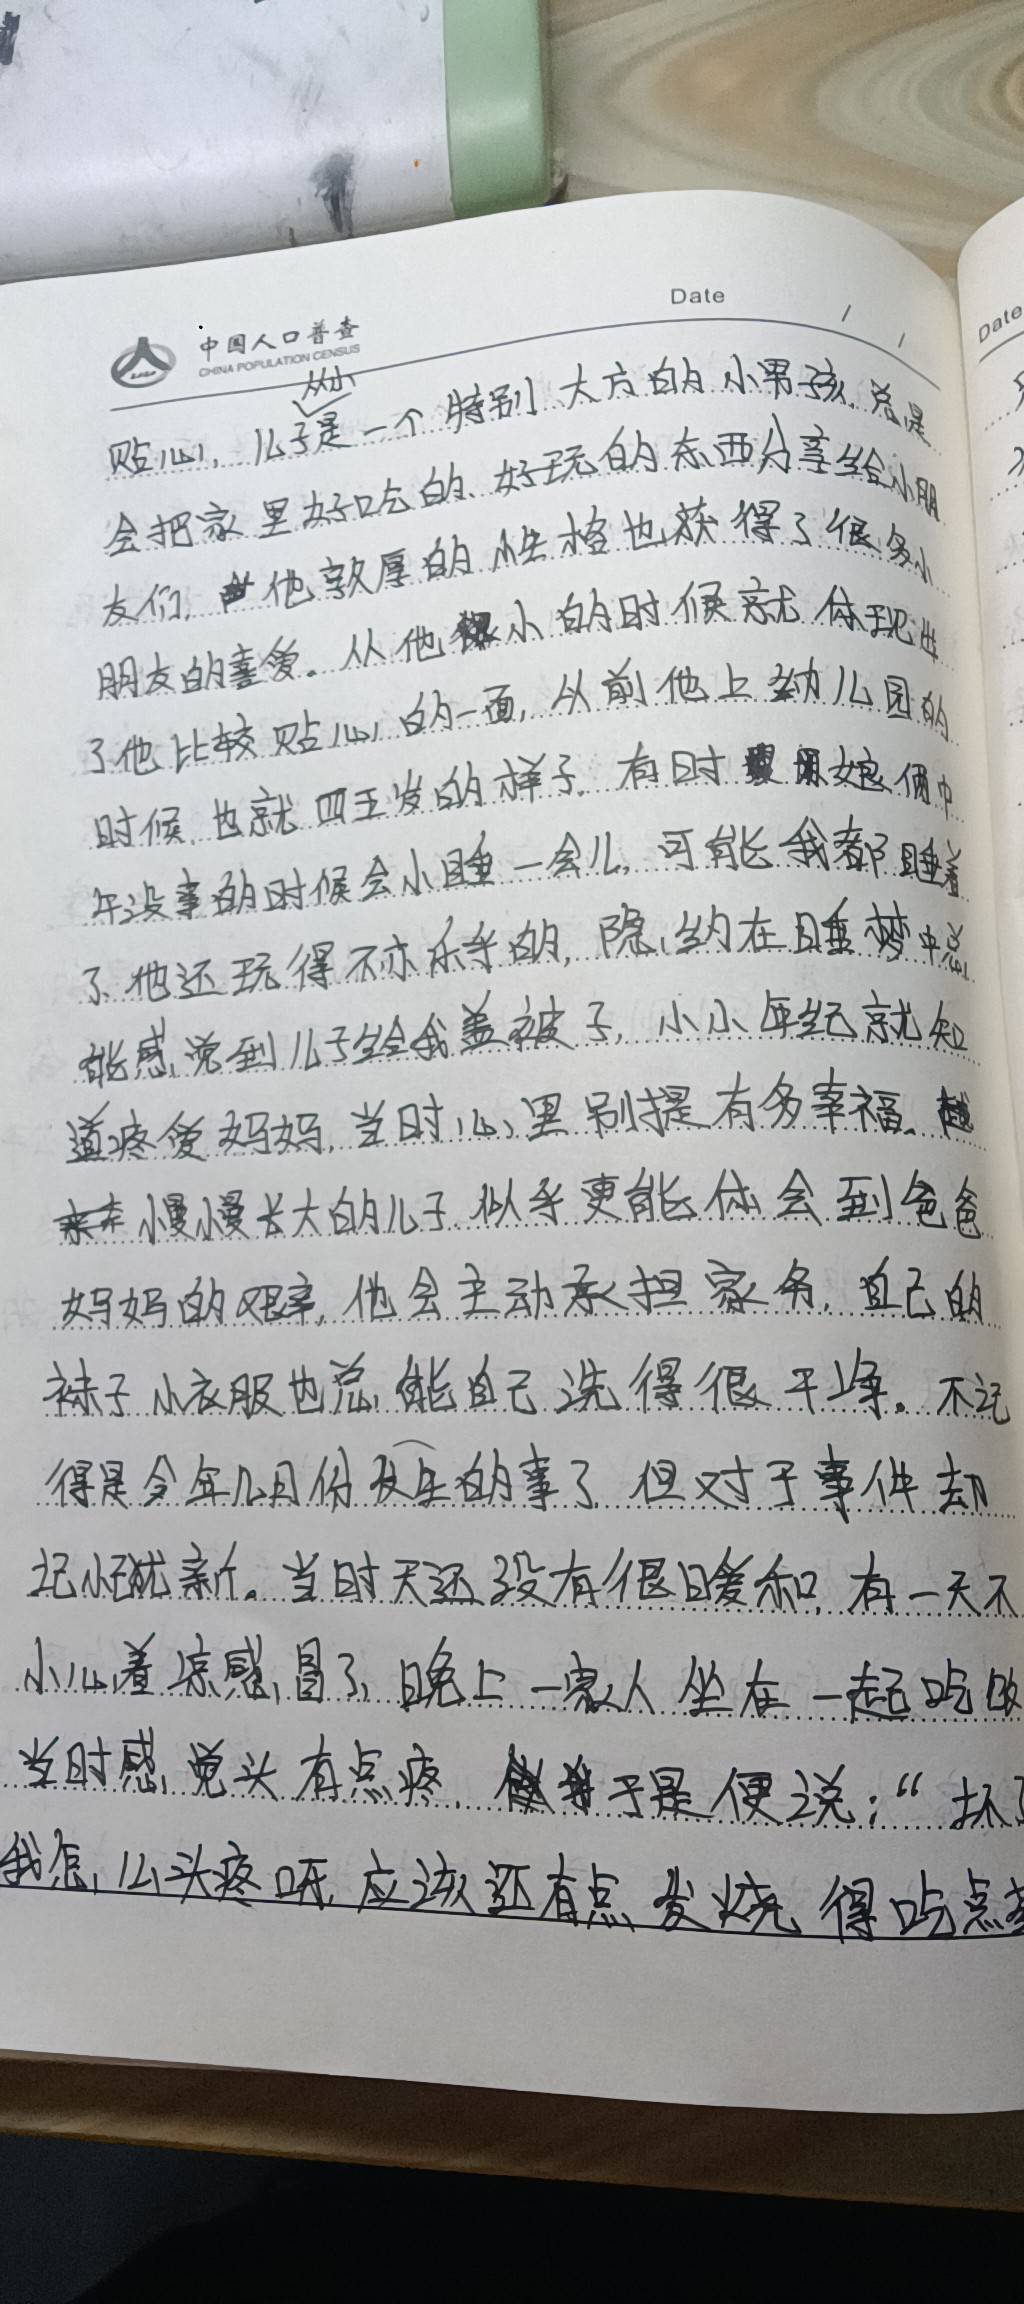 Date
中国人口普查
CHINA POPULATION CENSUS
从小
贴心,儿子是一个特别大方的小男孩,总是
会把家里好吃的、好玩的东西分享给小朋
友们,他敦厚的性格也获得了很多小
朋友的喜爱。从他小的时候就体现出
了他比较贴心的一面,从前他上幼儿园的
时候,也就四五岁的样子,有时娘俩中
午没事的时候会小睡一会儿,可能我都睡着
了,他还玩得不亦乐乎的,隐约在睡梦中总
能感觉到儿子给我盖被子,小小年纪就知
道疼爱妈妈,当时心里别提有多幸福。
慢慢长大的儿子似乎更能体会到爸爸
妈妈的艰辛,他会主动承担家务,自己的
袜子小衣服也总能自己洗得很干净。不记
得是今年几月份发生的事了,但对于事件却
记忆犹新。当时天还没有很暖和,有一天不
小心着凉感冒了,晚上一家人坐在一起吃饭
当时感觉头有点疼,于是便说:“坏了
我怎么头疼呀,应该还有点发烧,得吃点
Date